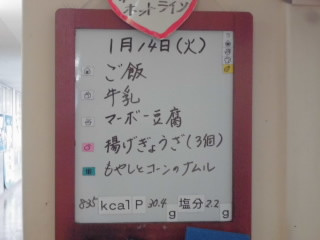 ホットライン
1月14日(火)
ご飯
牛乳
マーボー豆腐
揚げぎょうざ(3個)
もやしとコーンのナムル
835 kcal P 30.9 g 塩分 2.2 g